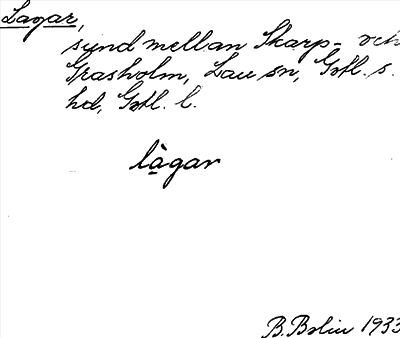 Lagar,
sund mellan Skarp- och
Grasholm, Lau sn, Gotl. s.
hd, Gotl. l.
làgar
B. Bolin 1933